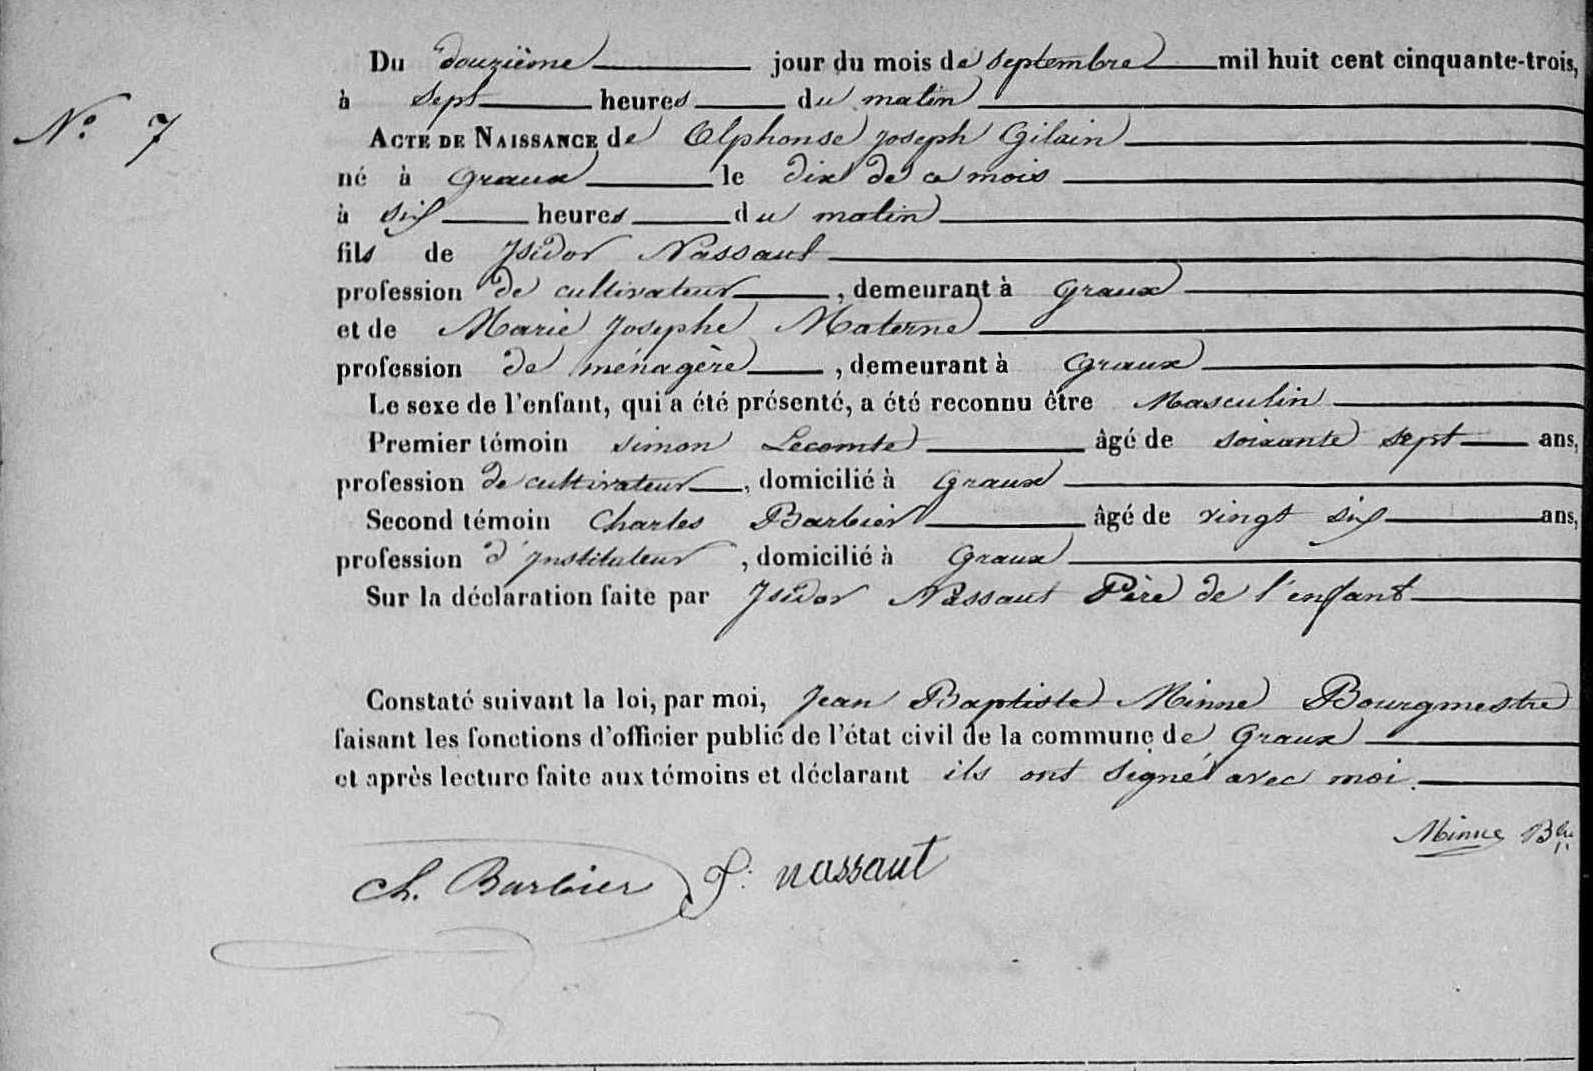 Du douzième jour du mois de septembre mil huit cent cinquante-trois,
à sept heures du matin
N.° 7
ACTE DE NAISSANCE de Alphonse Joseph Gilain
né à Graux le dix de ce mois
à six heures du matin
fils de Isidor Nassaut
profession de cultivateur, demeurant à Graux
et de Marie Josephe Materne
profession de ménagère, demeurant à Graux
Le sexe de l'enfant, qui a été présenté, a été reconnu être Masculin
Premier témoin simon Lecomte âgé de soixante sept ans,
profession de cultivateur, domicilié à Graux
Second témoin Charles Barbier âgé de vingt six ans,
profession d'Instituteur, domicilié à Graux
Sur la déclaration faite par Isidor Nassaut Père de l'enfant
Constaté suivant la loi, par moi, Jean Baptiste Minne Bourgmestre
faisant les fonctions d'officier public de l'état civil de la commune de Graux
et après lecture faite aux témoins et déclarant ils ont signé avec moi.
Minne
Ch. Barbier J: nassaut